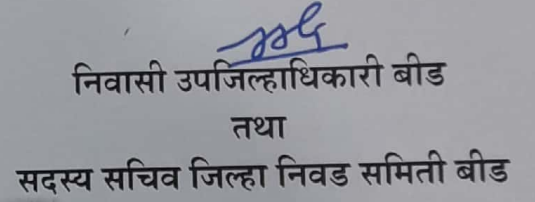 निवासी उपजिल्हाधिकारी बीड
तथा
सदस्य सचिव जिल्हा निवड समिती बीड